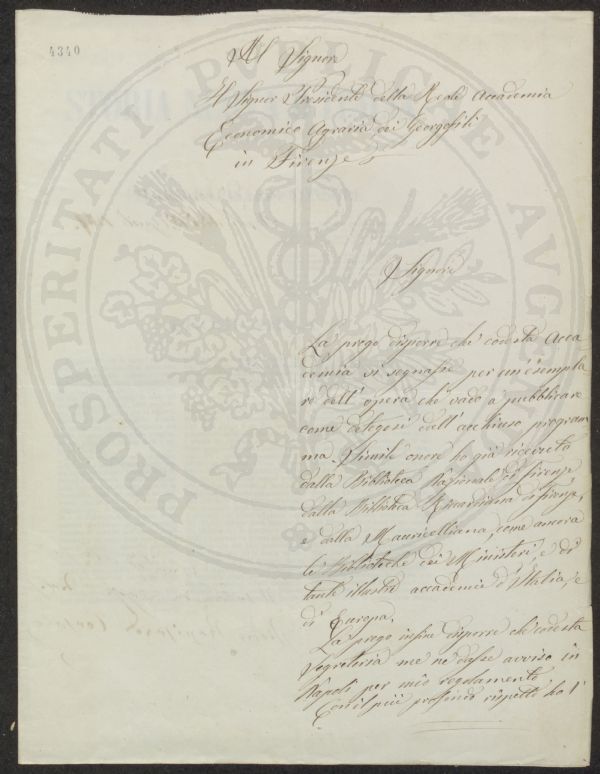 4340
Al Signore
Il Signor Presidente della Reale Accademia
Economico Agraria dei Georgofili
in Firenze
Signore
La prego disporre che codesta Acca-
demia si segnasse per un esempla
re dell'opera che vado a pubblicare
come dall'acchiuso program
ma. Simile onore ho già ricevuto
dalla Biblioteca Nazionale di Firenze
dalla Biblioteca di Firenze,
e dalla come ancora
le Biblioteche dei Ministeri, e di
tante illustri accademie d'Italia, e
di Europa.
La prego infine disporre che codesta
Segreteria me ne desse avviso in
Napoli per mio regolamento.
Con il più profondo rispetto ho l'
PROSPERITATI PUBLICAE AUGENDAE